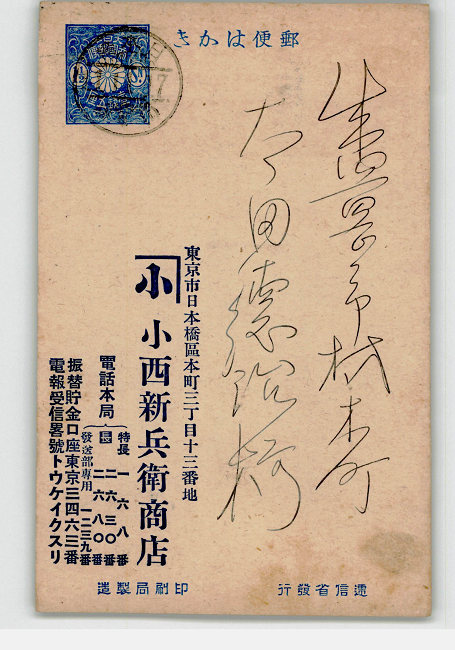 郵便はかき
材木町
太田德治
東京市日本橋區本町三丁目十三番地
小
小西新兵衛商店
電話本局
特長 一六八番
長 一六三〇番
二六八〇番
發送部專用 一二三九番
振替貯金口座東京三四六三番
電報受信畧號トウケイクスリ
遞信省發行
印刷局製造